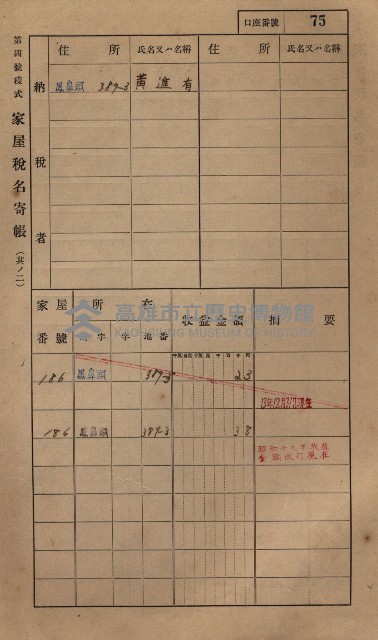 口座番號 75
第四號樣式 家屋稅名寄帳（其ノ二）
住所 氏名又ハ名稱 住所 氏名又ハ名稱
納稅者
鳳鼻頭 389-3 黃進有
家屋番號 所在 收益金額 摘要
大字 字 地番
186 鳳鼻頭 389-3 23
13年12月31日現在
186 鳳鼻頭 389-3 38
高雄市立歷史博物館
KAOHSIUNG MUSEUM OF HISTORY